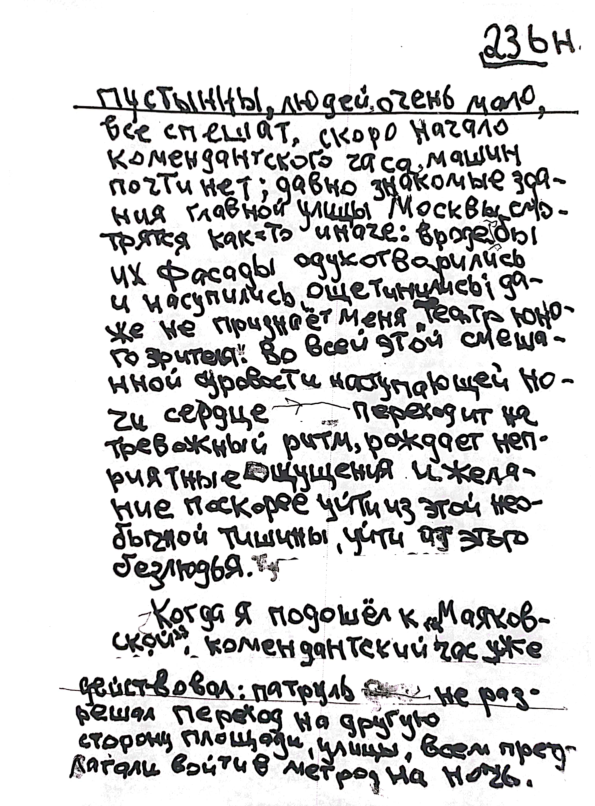 236 н.
пустынны, людей очень мало,
все спешат, скоро начало
комендантского часа, машин
почти нет; давно знакомые зда-
ния главной улицы Москвы смо-
трятся как-то иначе: вроде бы
их фасады одухотворились
и насупились, ощетинились; да-
же не признаёт меня „Театр юно-
го зрителя". Во всей этой смеша-
нной суровости наступающей но-
чи сердце переходит на
тревожный ритм, рождает неп-
риятные ощущения и жела-
ние поскорее уйти из этой нео-
бычной тишины, уйти из этого
безлюдья.
Когда я подошёл к „Маяков-
ской", комендантский час уже
действовал: патруль не раз-
решал переход на другую
сторону площади, улицы, всем пред-
лагали войти в метро, на ночь.